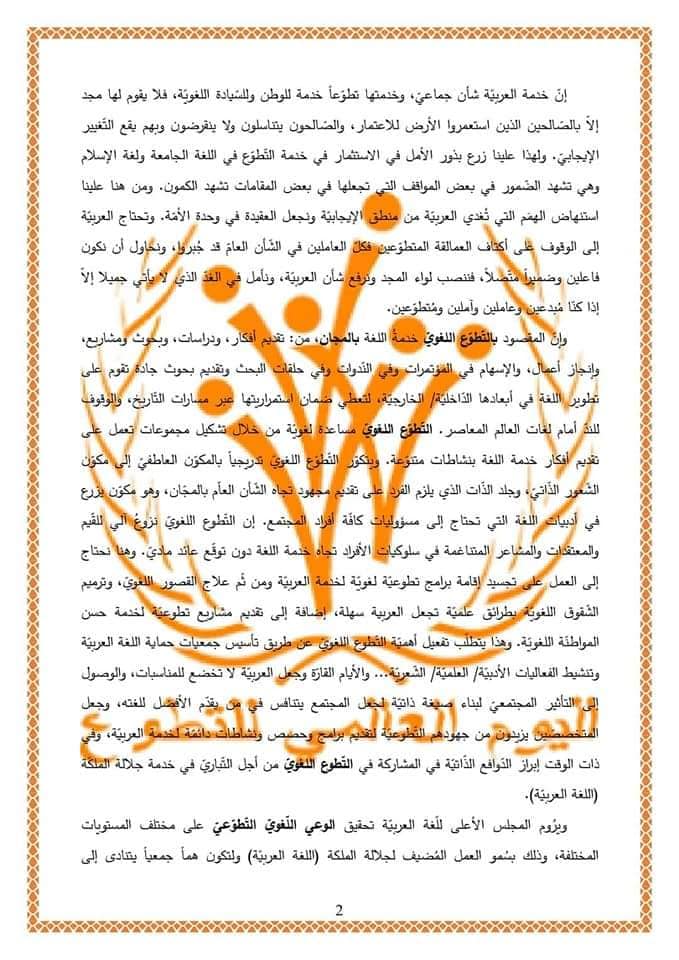 إنّ خدمة العربيّة شأن جماعيّ، وخدمتها تطوّعاً خدمة للوطن وللسّيادة اللغويّة، فلا يقوم لها مجد
إلاّ بالصّالحين الذين استعمروا الأرض للاعتمار، والصّالحون يتناسلون ولا ينقرضون وبهم يقع التّغيير
الإيجابيّ. ولهذا علينا زرع بذور الأمل في الاستثمار في خدمة التّطوّع في اللغة الجامعة ولغة الإسلام
وهي تشهد الضّمور في بعض المواقف التي تجعلها في بعض المقامات تشهد الكمون. ومن هنا علينا
استنهاض الهمَم التي تُغدي العربيّة من منطق الإيجابيّة ونجعل العقيدة في وحدة الأمّة. وتحتاج العربيّة
إلى الوقوف على أكتاف العمالقة المتطوّعين فكلّ العاملين في الشّأن العامّ قد جُبروا، ونحاول أن نكون
فاعلين وضميراً متّصلاً، فننصب لواء المجد ونرفع شأن العربيّة، ونأمل في الغدّ الذي لا يأتي جميلا إلاّ
إذا كنّا مُبدعين وعاملين وآملين ومُتطوّعين.
وإنّ المقصود بالتّطوّع اللغويّ خدمةُ اللغة بالمجان، من: تقديم أفكار، ودراسات، وبحوث ومشاريع،
وإنجاز أعمال، والإسهام في المؤتمرات وفي النّدوات وفي حلقات البحث وتقديم بحوث جادة تقوم على
تطوير اللغة في أبعادها الدّاخليّة/ الخارجيّة، لتعطي ضمان استمراريتها عبر مسارات التّاريخ، والوقوف
للندّ أمام لغات العالم المعاصر. التّطوّع اللغويّ مساعدة لغويّة من خلال تشكيل مجموعات تعمل على
تقديم أفكار خدمة اللغة بنشاطات متنوّعة. ويتكوّر التّطوّع اللغويّ تدريجياً بالمكوّن العاطفيّ إلى مكوّن
الشّعور الذّاتيّ، وجلد الذّات الذي يلزم الفرد على تقديم مجهود تجاه الشّأن العاّم بالمجّان، وهو مكوّن يزرع
في أدبيات اللغة التي تحتاج إلى مسؤوليات كافّة أفراد المجتمع. إن التّطوع اللغويّ نزوعٌ آلي للقّيم
والمعتقدات والمشاعر المتناغمة في سلوكيات الأفراد تجاه خدمة اللغة دون توقّع عائد ماديّ. وهنا نحتاج
إلى العمل على تجسيد إقامة برامج تطوعيّة لغويّة لخدمة العربيّة ومن ثُم علاج القصور اللغويّ، وترميم
الشّقوق اللغويّة بطرائق علميّة تجعل العربية سهلة، إضافة إلى تقديم مشاريع تطوعيّة لخدمة حسن
المواطنّة اللغويّة. وهذا يتطلّب تفعيل أهميّة التّطوع اللغويّ عن طريق تأسيس جمعيات حماية اللغة العربيّة
وتنشيط الفعاليات الأدبيّة/ العلميّة/ الشّعريّة... والأيام القارّة وجعل العربيّة لا تخضع للمناسبات، والوصول
إلى التأثير المجتمعيّ لبناء صيغة ذاتيّة لجعل المجتمع يتنافس في من يقدّم الأفضل للغته، وجعل
المتخصصّين يزيدون من جهودهم التّطوعيّة لتقديم برامج وحصص ونشاطات دائمّة لخدمة العربيّة، وفي
ذات الوقت إبراز الدّوافع الذّاتيّة في المشاركة في التّطوع اللغويّ من أجل التّباري في خدمة جلالة الملكّة
(اللغة العربيّة).
ويرُوم المجلس الأعلى للّغة العربيّة تحقيق الوعي اللّغويّ التّطوّعيّ على مختلف المستويات
المختلفة، وذلك بسُمو العمل المُضيف لجلالة الملكة (اللغة العربيّة) ولتكون هماً جمعياً يتنادى إلى
اليوم العالمي للتطوع
2